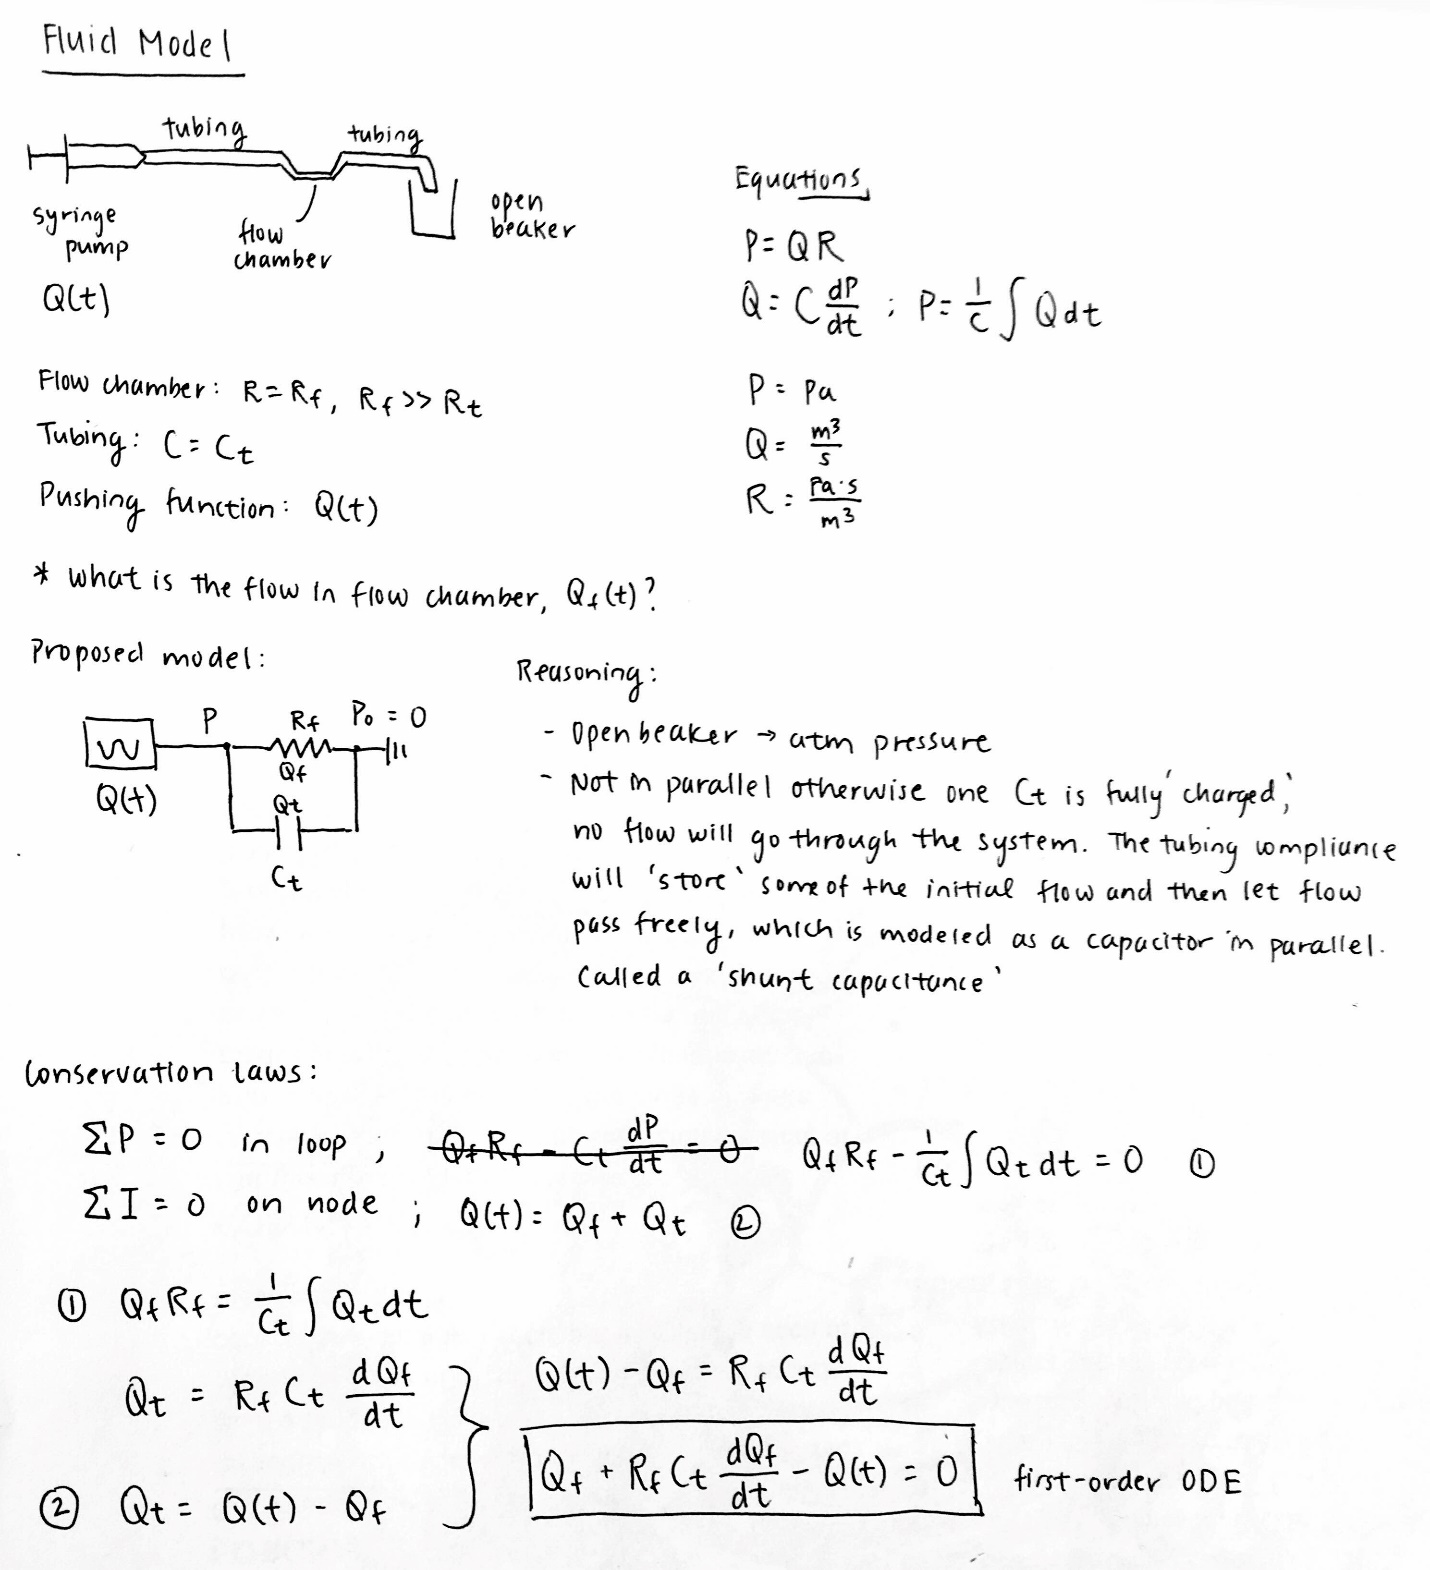 Fluid Model
tubing
tubing
syringe
pump
flow
chamber
open
beaker
Q(t)
Equations
P = QR
Q = C dP/dt ; P = 1/C ∫ Q dt
P = Pa
Q = m³/s
R = Pa·s/m³
Flow chamber: R = Rf, Rf >> Rt
Tubing: C = Ct
Pushing function: Q(t)
* what is the flow in flow chamber, Qf(t)?
Proposed model:
P
Rf
P₀ = 0
Qf
Q(t)
Qt
Ct
Reasoning:
- Open beaker → atm pressure
- Not in parallel otherwise one Ct is fully 'charged,'
no flow will go through the system. The tubing compliance
will 'store' some of the initial flow and then let flow
pass freely, which is modeled as a capacitor in parallel.
Called a 'shunt capacitance'
Conservation laws:
ΣP = 0 in loop ; Qf Rf - Ct dP/dt = 0 Qf Rf - 1/Ct ∫ Qt dt = 0 ①
ΣI = 0 on node ; Q(t) = Qf + Qt ②
① Qf Rf = 1/Ct ∫ Qt dt
Qt = Rf Ct dQf/dt
② Qt = Q(t) - Qf
Q(t) - Qf = Rf Ct dQf/dt
Qf + Rf Ct dQf/dt - Q(t) = 0 first-order ODE